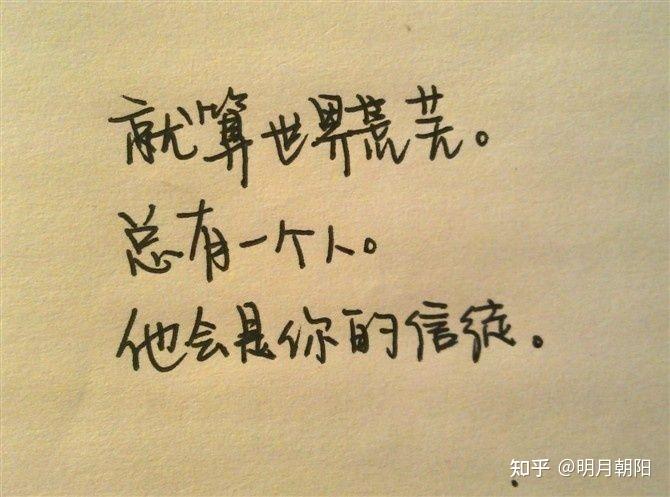 就算世界荒芜。
总有一个人。
他会是你的信徒。
知乎 @明月朝阳